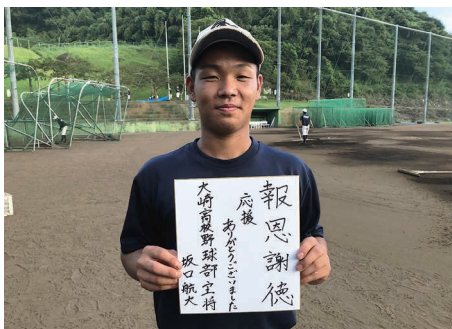 報恩謝徳
応援
ありがとうございました
大崎高校野球部主将
坂口航大